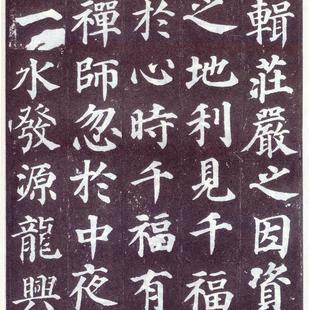 輯莊嚴之因資
之地利見千福
於心時千福有
禪師忽於中夜
一水發源龍興